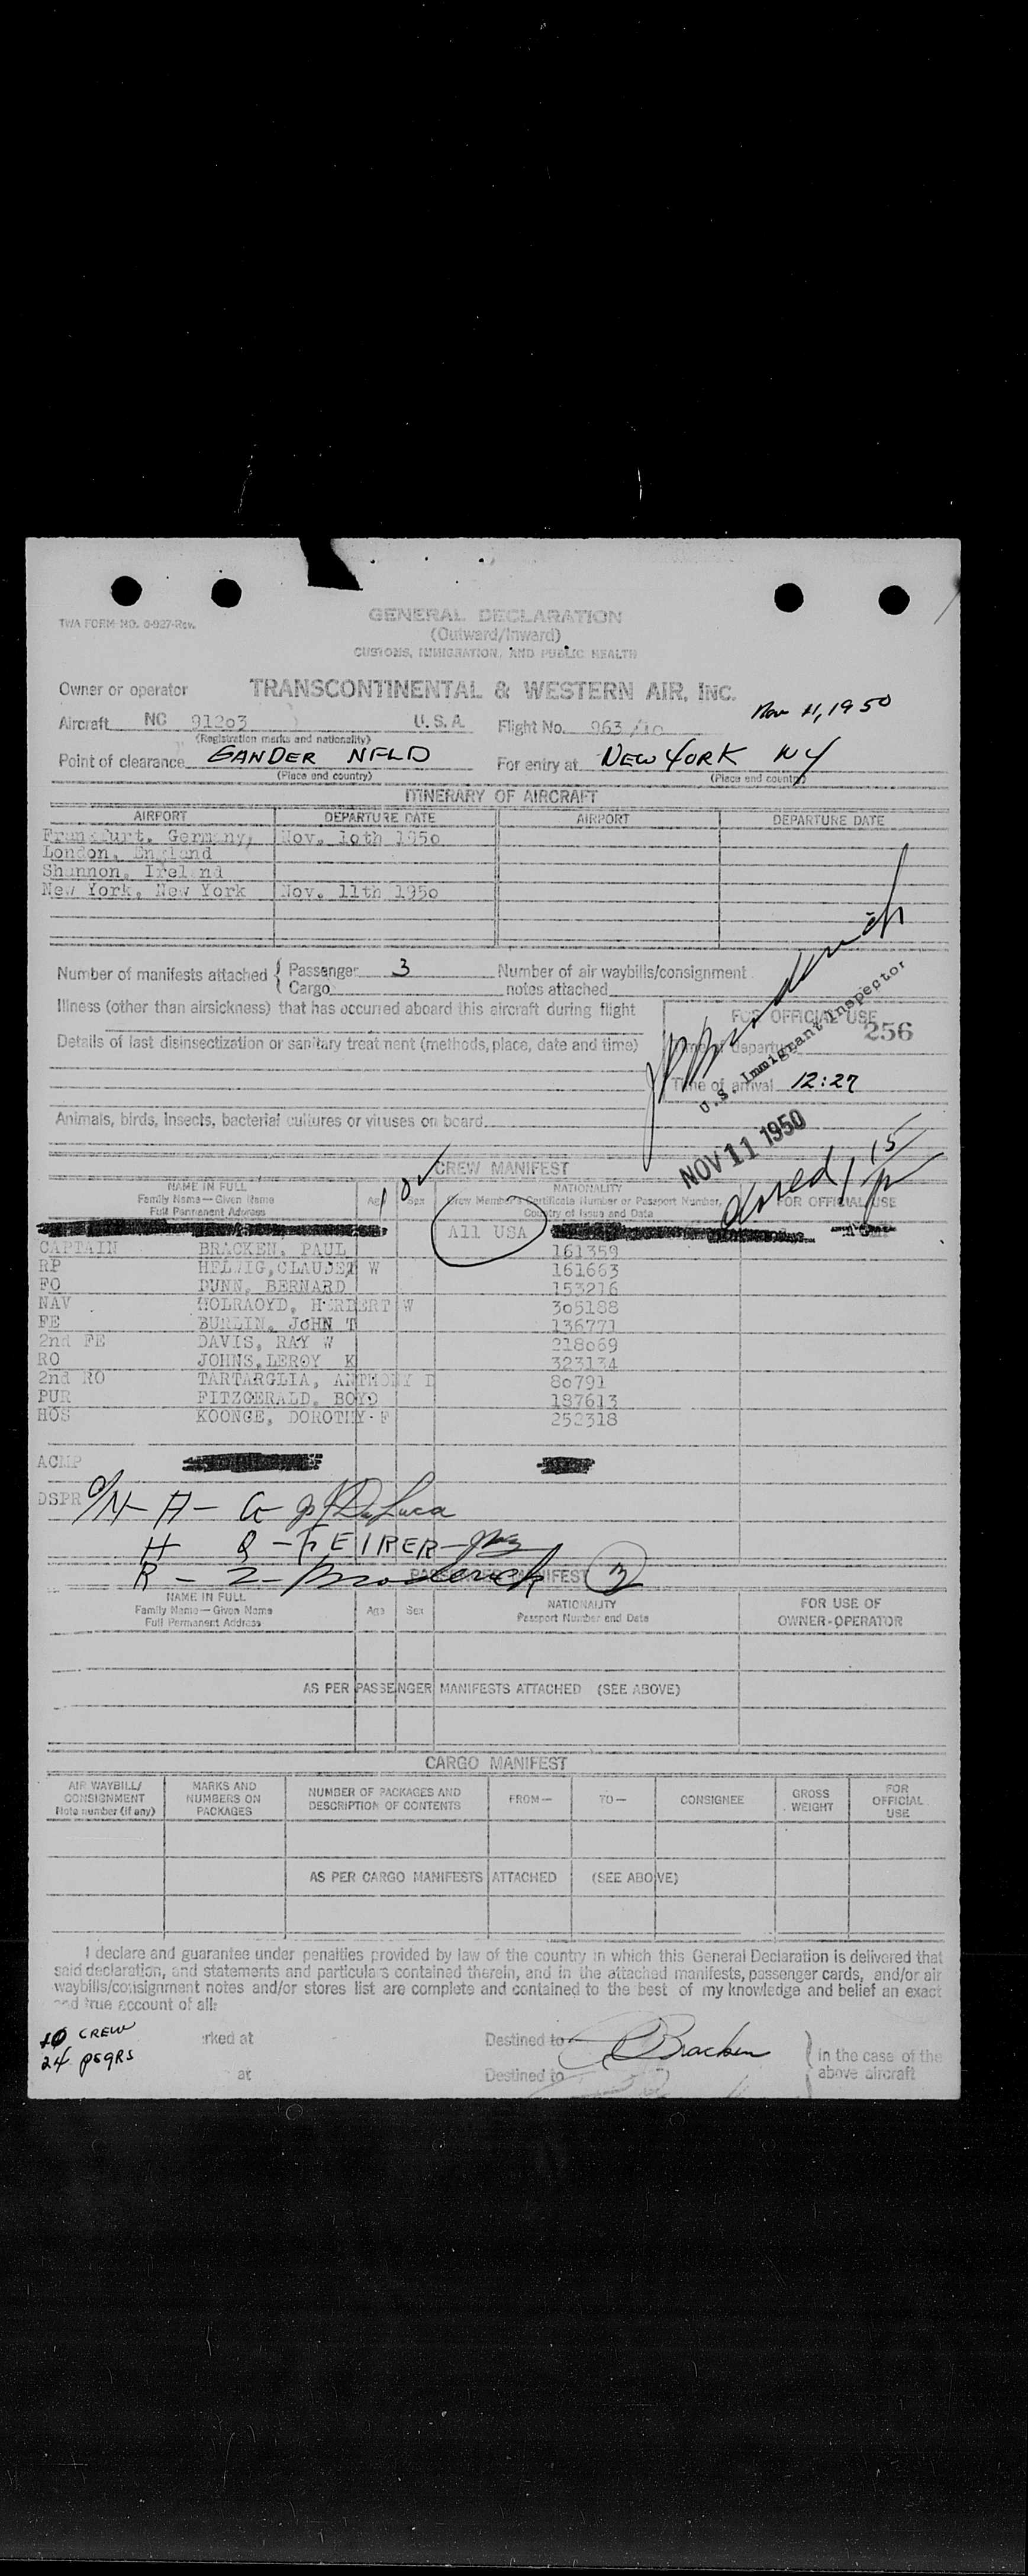 TWA FORM NO. 0-927-Rev.
GENERAL DECLARATION
(Outward/Inward)
CUSTOMS, IMMIGRATION, AND PUBLIC HEALTH
Owner or operator TRANSCONTINENTAL & WESTERN AIR, INC.
Nov 11, 1950
Aircraft NC 91203 U.S.A. Flight No. 963/10
(Registration marks and nationality)
Point of clearance GANDER NFLD For entry at NEW YORK NY
(Place and country) (Place and country)
ITINERARY OF AIRCRAFT
AIRPORT DEPARTURE DATE AIRPORT DEPARTURE DATE
Frankfurt. Germany, Nov. 10th 1950
London, England
Shannon, Ireland
New York, New York Nov. 11th 1950
Number of manifests attached { Passenger 3 Number of air waybills/consignment
Cargo notes attached
Illness (other than airsickness) that has occurred aboard this aircraft during flight
FOR OFFICIAL USE
256
Details of last disinsectization or sanitary treatment (methods, place, date and time)
Time of departure
Time of arrival 12:27
U.S. Immigrant Inspector
Animals, birds, insects, bacterial cultures or viruses on board
NOV 11 1950
CREW MANIFEST
10
NAME IN FULL Age Sex NATIONALITY
Family Name—Given Name Crew Member's Certificate Number or Passport Number, FOR OFFICIAL USE
Full Permanent Address Country of Issue and Data
All USA
CAPTAIN BRACKEN, PAUL 161359
RP HELWIG, CLAUDE W 161663
FO DUNN, BERNARD 153216
NAV HOLRAOYD, HERBERT W 305188
FE BURLIN, JOHN T 136771
2nd FE DAVIS, RAY W 218069
RO JOHNS, LEROY K 323134
2nd RO TARTARGLIA, ANTHONY D 80791
PUR FITZGERALD, BOYD 187613
HOS KOONCE, DOROTHY F 252318
ACMP
DSPR
H Q - FEIRER
R - 2 - Broderick
PASSENGER MANIFEST 3
NAME IN FULL Age Sex NATIONALITY FOR USE OF
Family Name—Given Name Passport Number and Date OWNER-OPERATOR
Full Permanent Address
AS PER PASSENGER MANIFESTS ATTACHED (SEE ABOVE)
CARGO MANIFEST
AIR WAYBILL/ MARKS AND NUMBER OF PACKAGES AND FROM— TO— CONSIGNEE GROSS FOR
CONSIGNMENT NUMBERS ON DESCRIPTION OF CONTENTS WEIGHT OFFICIAL
Note number (if any) PACKAGES USE
AS PER CARGO MANIFESTS ATTACHED (SEE ABOVE)
I declare and guarantee under penalties provided by law of the country in which this General Declaration is delivered that
said declaration, and statements and particulars contained therein, and in the attached manifests, passenger cards, and/or air
waybills/consignment notes and/or stores list are complete and contained to the best of my knowledge and belief an exact
and true account of all:
10 CREW rked at Destined to P Bracken } in the case of the
24 psgrs at Destined to above aircraft